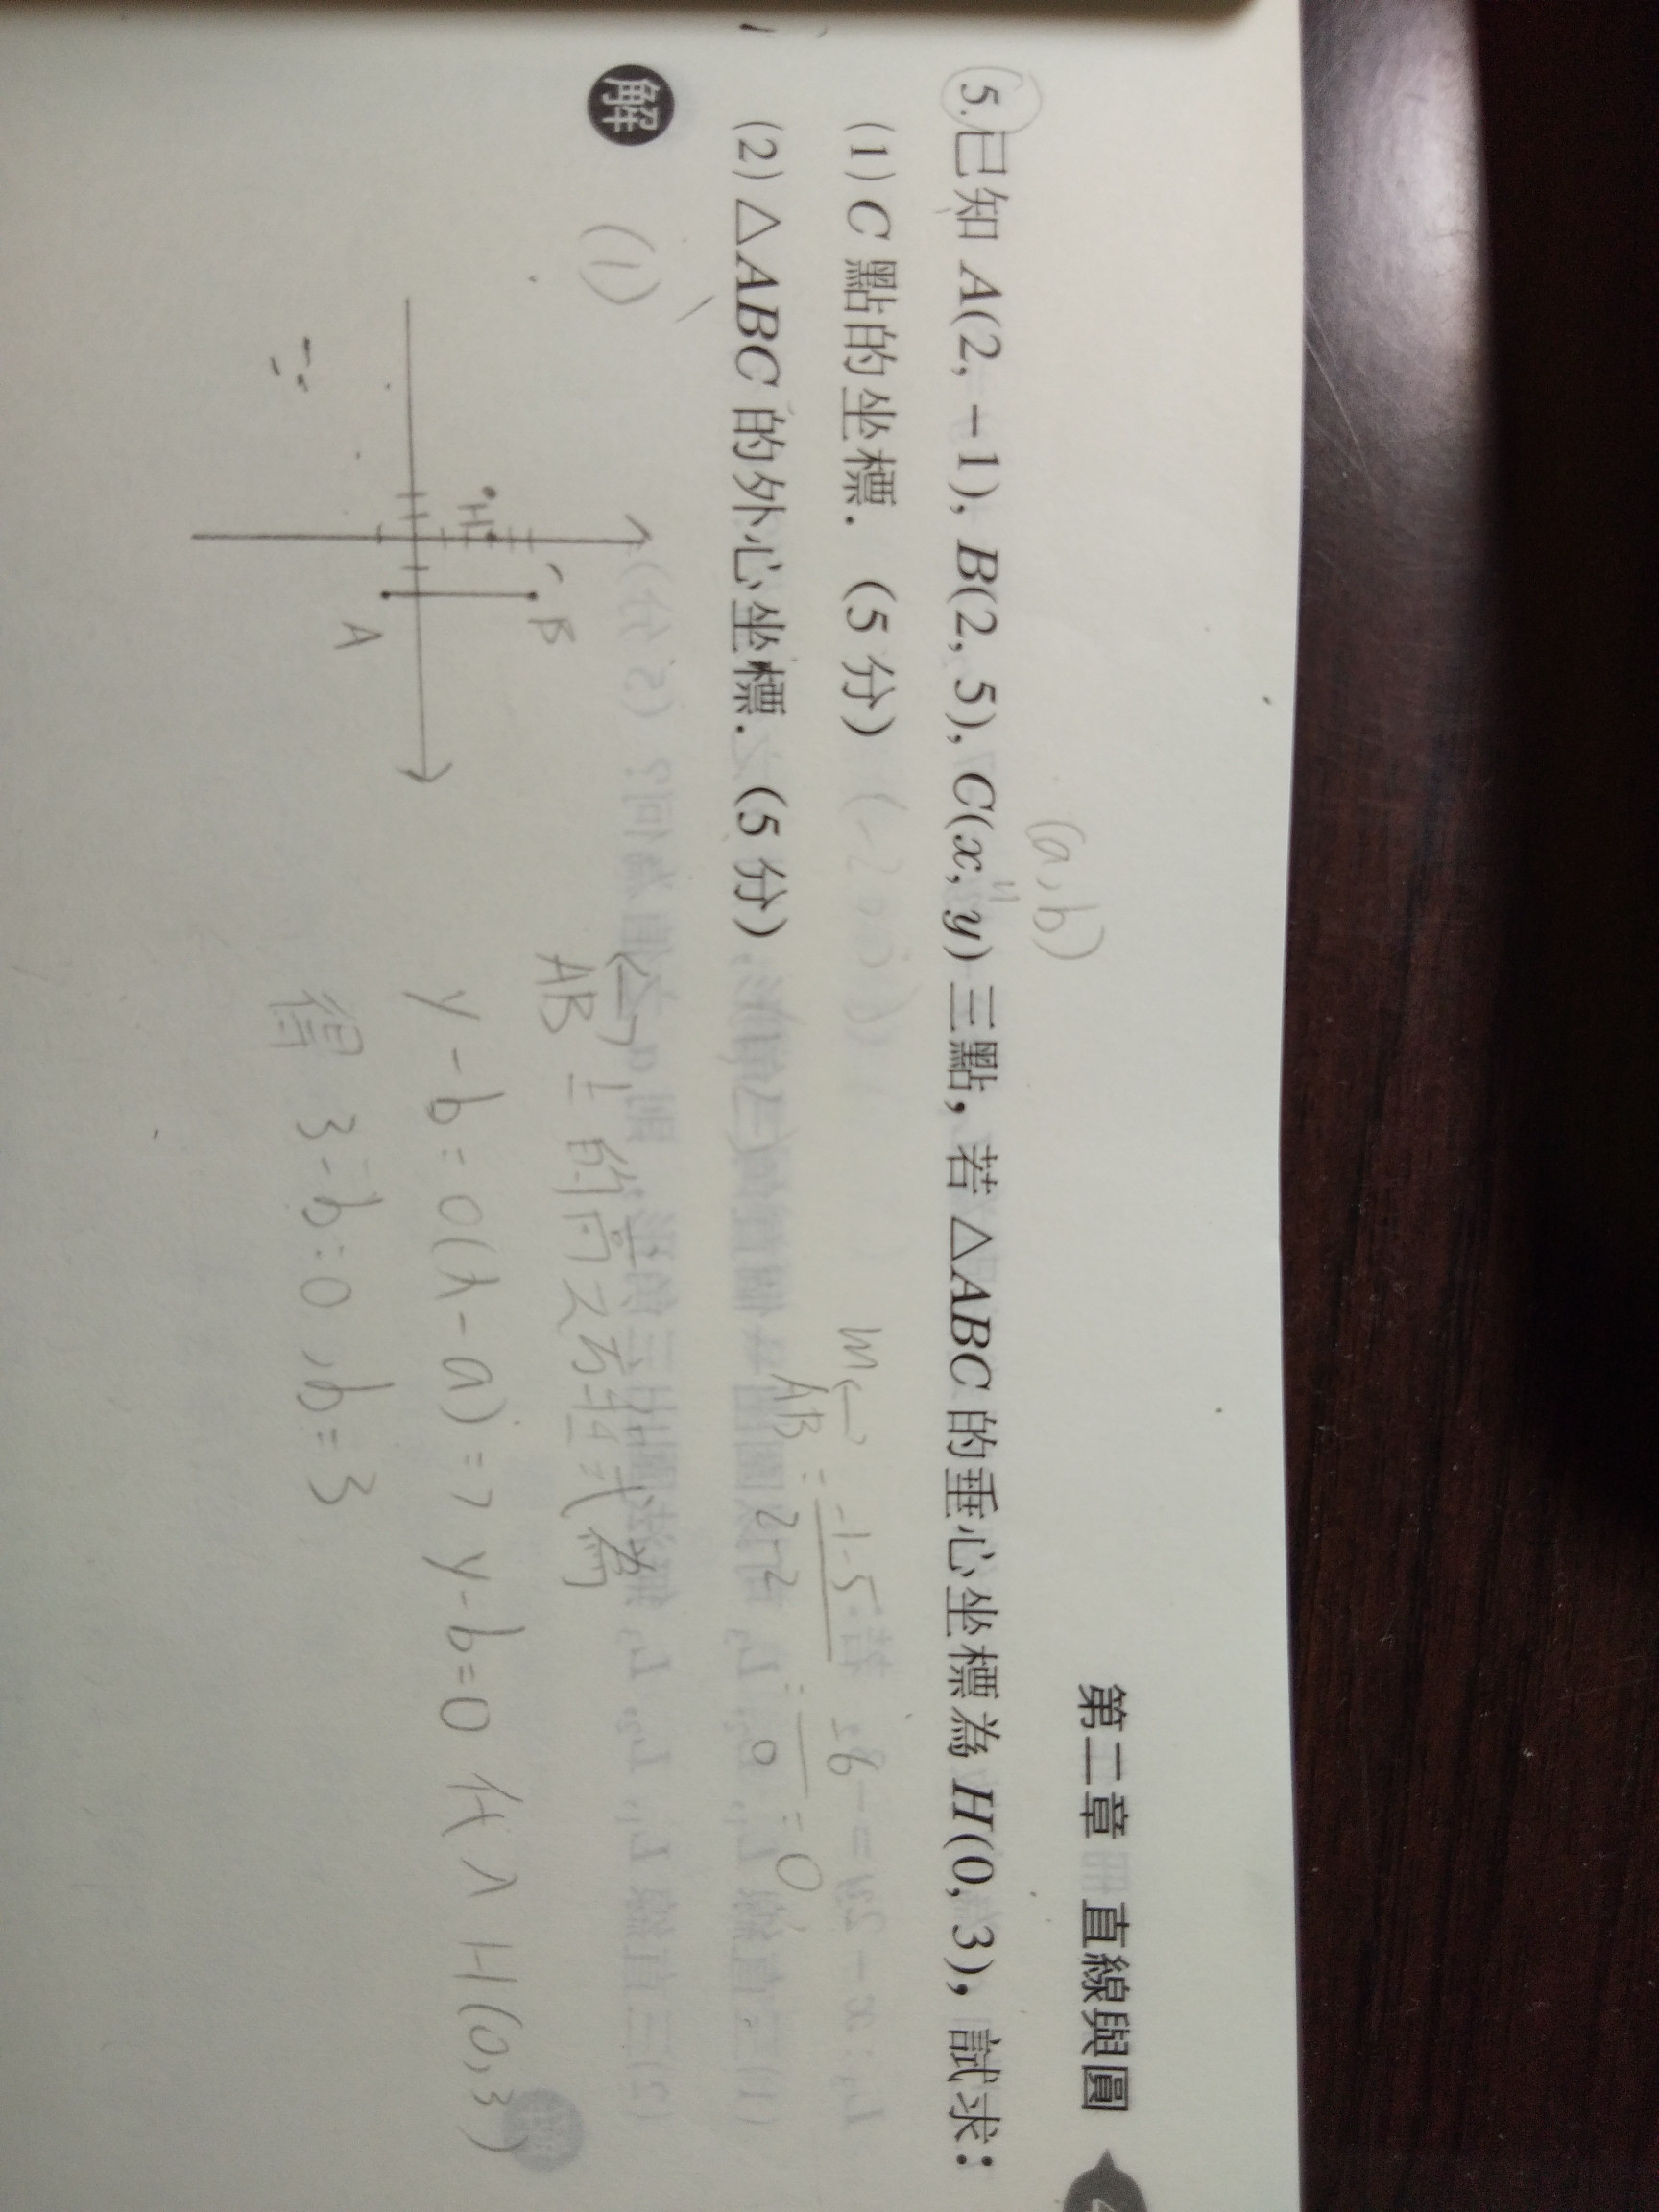 第二章 直線與圓
(a,b)
5.已知 A(2, −1), B(2, 5), C(x, y) 三點，若 △ABC 的垂心坐標為 H(0, 3)，試求：
(1) C 點的坐標．(5 分)
(2) △ABC 的外心坐標．(5 分)
m AB = -1-5 / 2-2 = / 0 = 0
解 (1)
AB 上的高之方程式為
y-b=0(x-a) => y-b=0 代入 H(0,3)
得 3-b=0, b=3
B
H
A